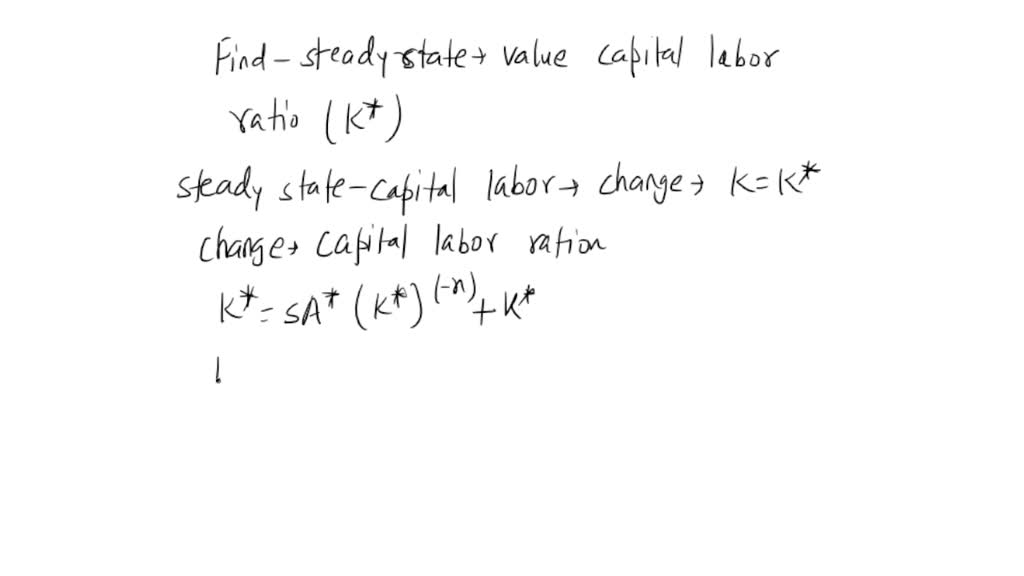 Find - steady state → value capital labor
ratio (K*)
steady state - capital labor → change → K = K*
change → capital labor ration
K* = SA* (K*)^(-n) + K*